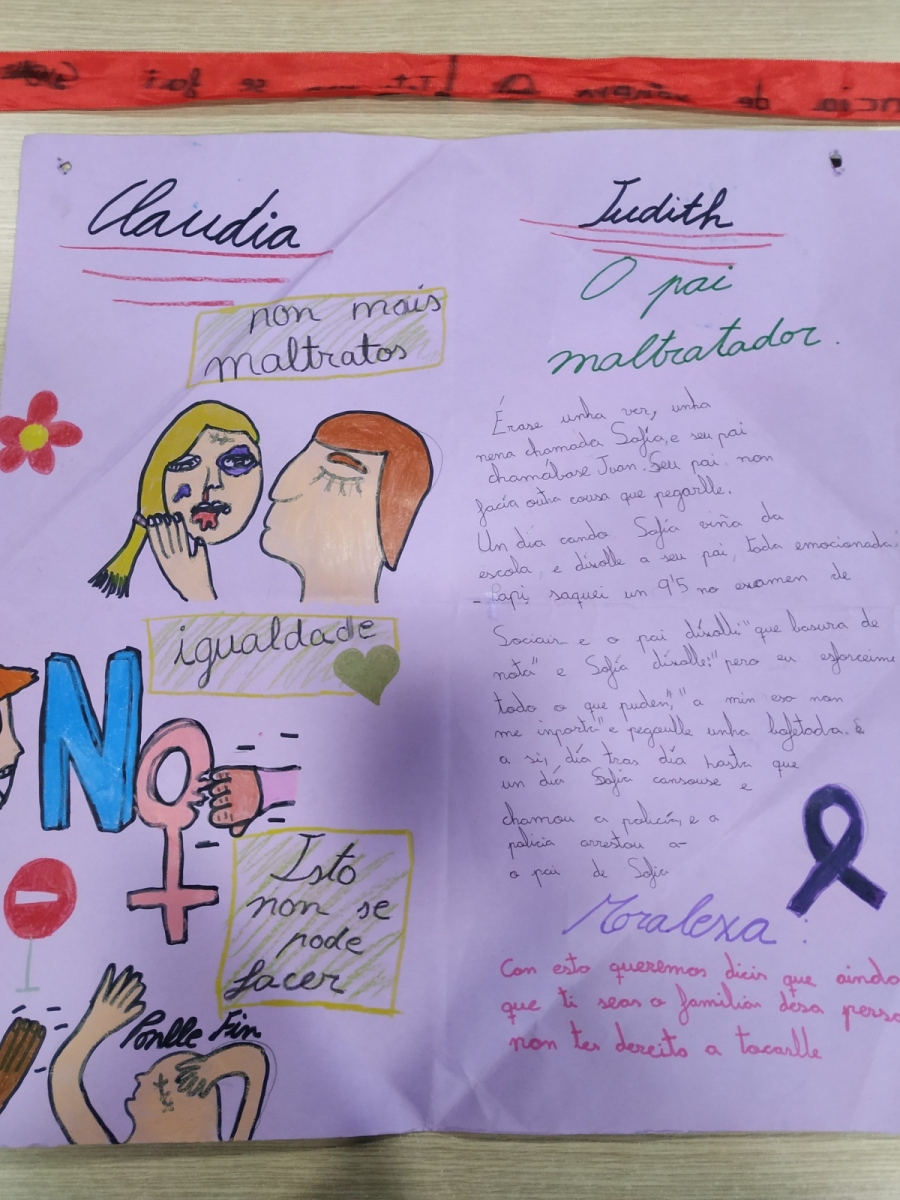 Claudia
non mais
maltratos
igualdade
NO
Isto
non se
pode
facer
Ponlle Fin
Judith
O pai
maltratador.
Érase unha vez, unha
nena chamada Sofía, e seu pai
chamábase Juan. Seu pai non
facía outra cousa que pegarlle.
Un día cando Sofía viña da
escola, e díxolle a seu pai, toda emocionada:
- Papi, saquei un 9'5 no examen de
Sociais e o pai díxolle: "que basura de
nota" e Sofía díxolle: "pero eu esforceime
todo o que puden", "a min eso non
me inporta" e pegoulle unha bofetada. E
a si, día tras día hasta que
un día Sofía cansouse e
chamou a policía, e a
policía arrestou a
o pai de Sofía
Moralexa:
Con esto queremos dicir que ainda
que ti seas a familia desa perso
non tes dereito a tocarlle